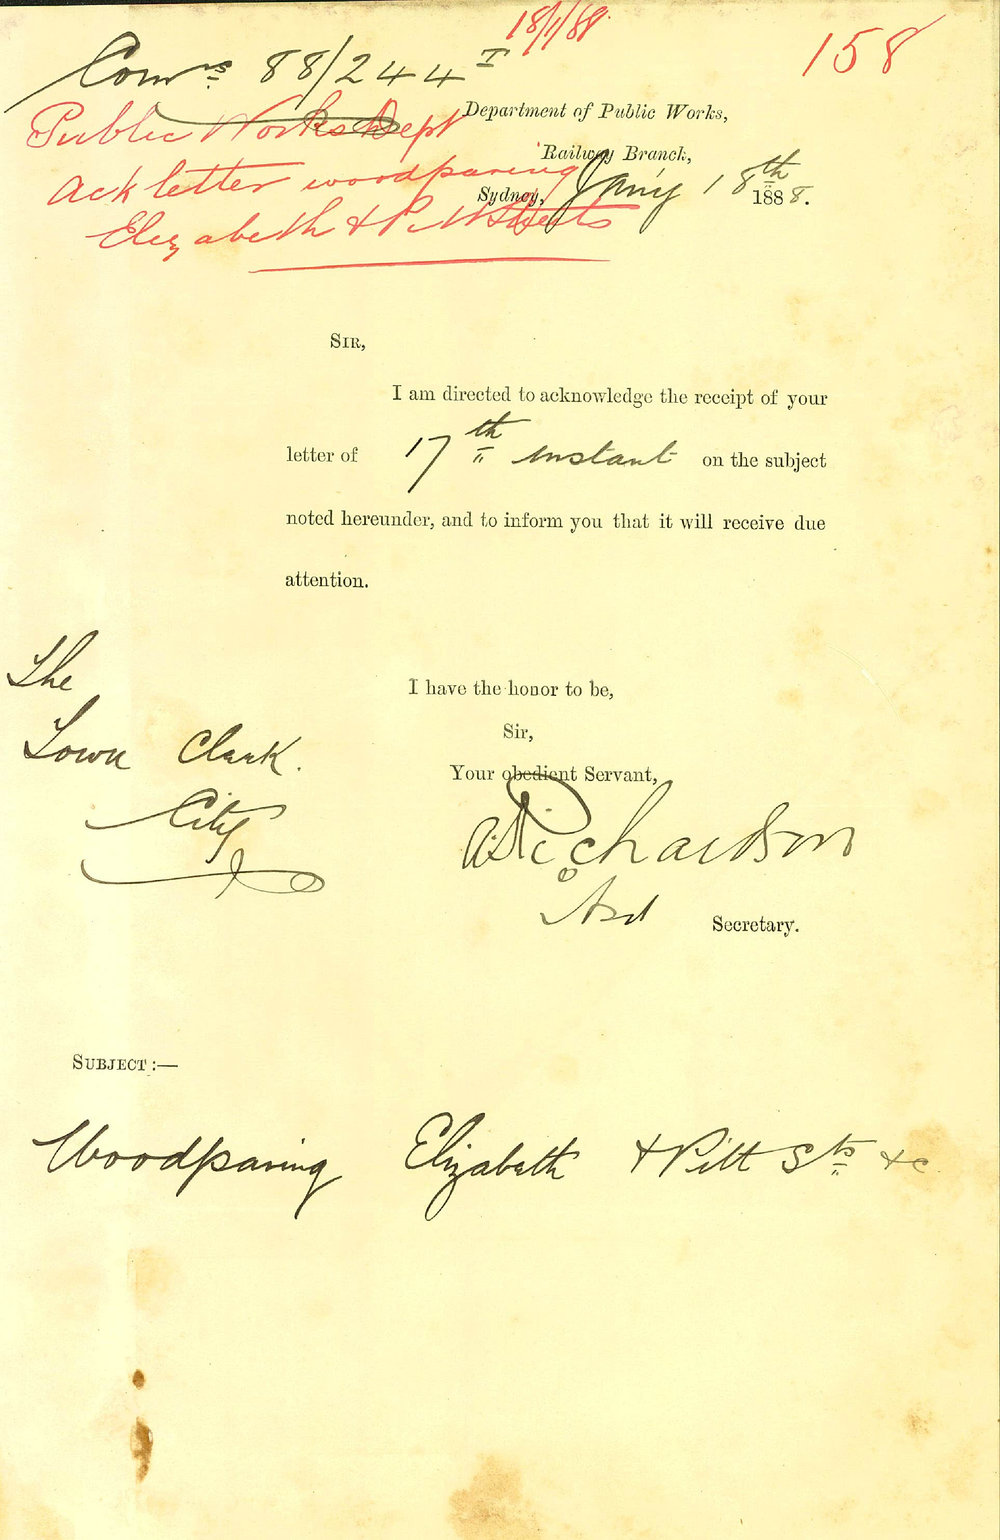 18/1/88
158
Comrs 88/244 T
Public Works Dept
Ack letter woodpaving
Elizabeth & Pitt Streets
Department of Public Works,
Railway Branch,
Sydney, Jany 18th 1888.
SIR,
I am directed to acknowledge the receipt of your
letter of 17th instant on the subject
noted hereunder, and to inform you that it will receive due
attention.
I have the honor to be,
Sir,
Your obedient Servant,
Richardson
Secretary.
The
Town Clerk.
City
SUBJECT :—
Woodpaving Elizabeth & Pitt Sts &c